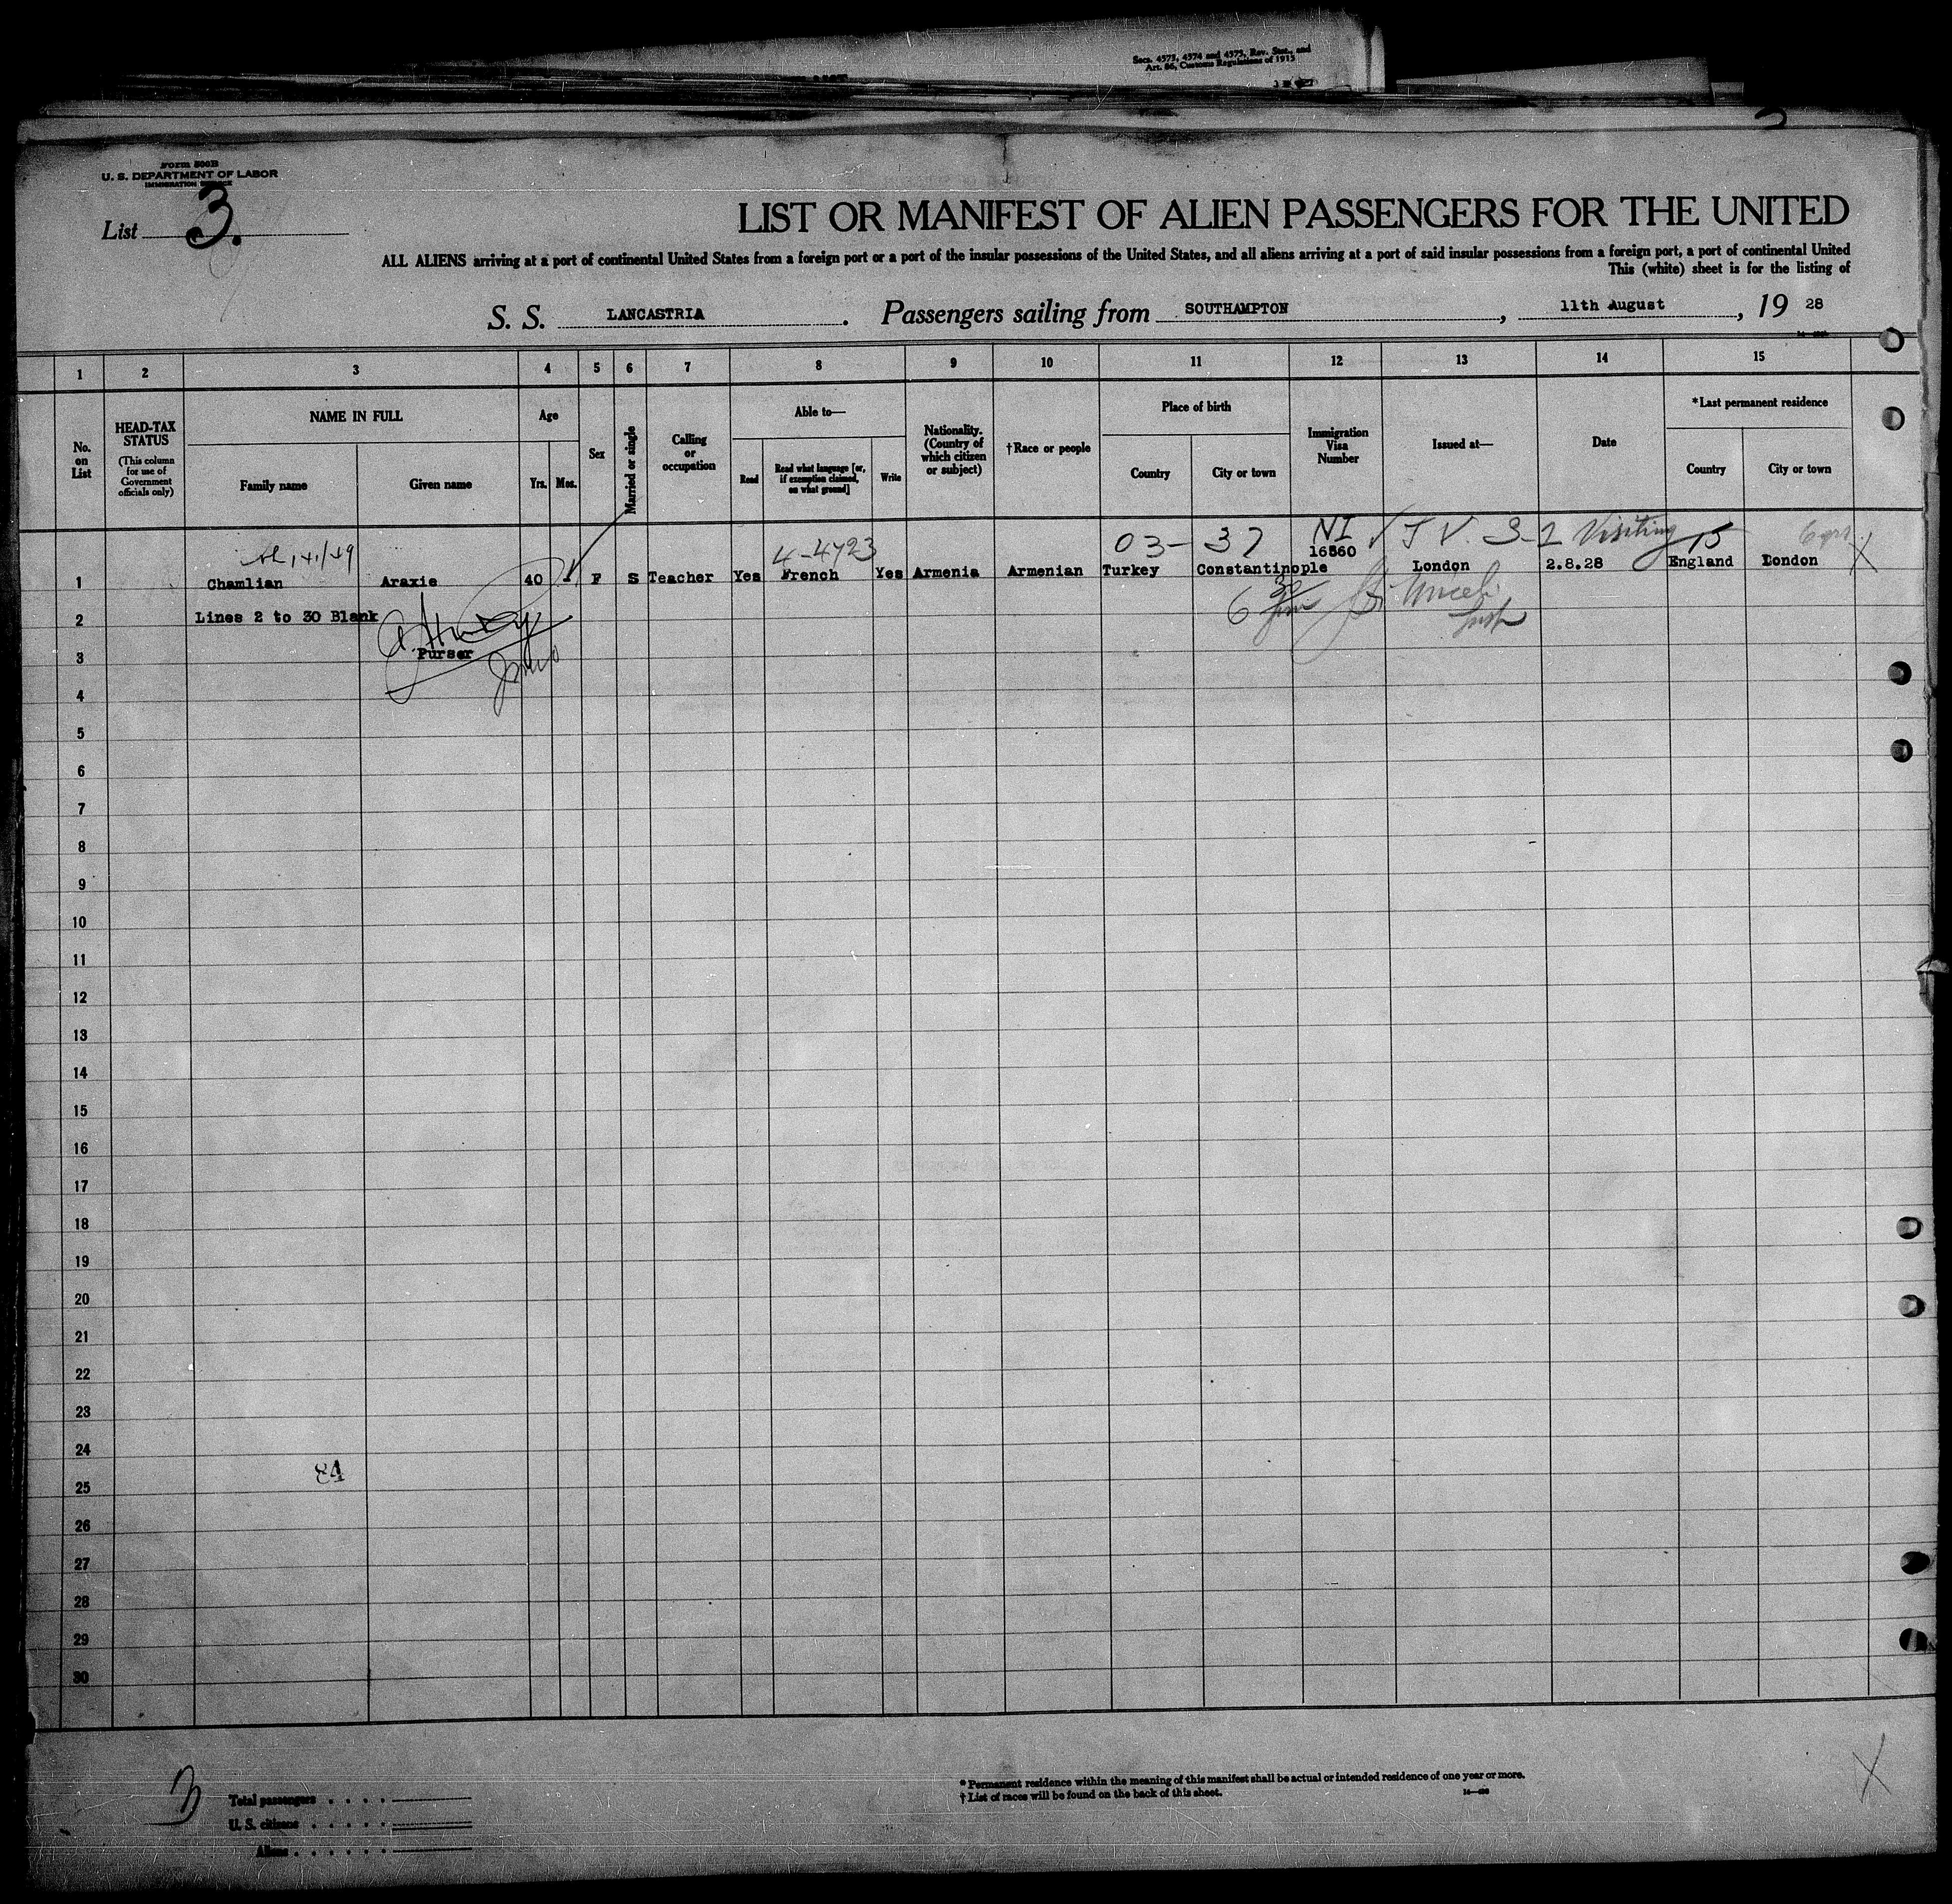 Secs. 4573, 4574 and 4575, Rev. Stat., and
Art. 86, Customs Regulations of 1915
Form 500B
U. S. DEPARTMENT OF LABOR
IMMIGRATION SERVICE
List 3.
LIST OR MANIFEST OF ALIEN PASSENGERS FOR THE UNITED
ALL ALIENS arriving at a port of continental United States from a foreign port or a port of the insular possessions of the United States, and all aliens arriving at a port of said insular possessions from a foreign port, a port of continental United
This (white) sheet is for the listing of
S. S. LANCASTRIA. Passengers sailing from SOUTHAMPTON, 11th August, 19 28
1 2 3 4 5 6 7 8 9 10 11 12 13 14 15
No. on List
HEAD-TAX STATUS
(This column for use of Government officials only)
NAME IN FULL
Family name
Given name
Age
Yrs.
Mos.
Sex
Married or single
Calling or occupation
Able to—
Read
Read what language [or, if exemption claimed, on what ground]
Write
Nationality. (Country of which citizen or subject)
†Race or people
Place of birth
Country
City or town
Immigration Visa Number
Issued at—
Date
*Last permanent residence
Country
City or town
4-4723 03- 37 NI Visiting 15
1 Chamlian Araxie 40 - F S Teacher Yes French Yes Armenia Armenian Turkey Constantinople 16560 London 2.8.28 England London X
2 Lines 2 to 30 Blank
3 Purser
4
5
6
7
8
9
10
11
12
13
14
15
16
17
18
19
20
21
22
23
24
84
25
26
27
28
29
30
3
Total passengers
U. S. citizens
Aliens
* Permanent residence within the meaning of this manifest shall be actual or intended residence of one year or more.
† List of races will be found on the back of this sheet.
X